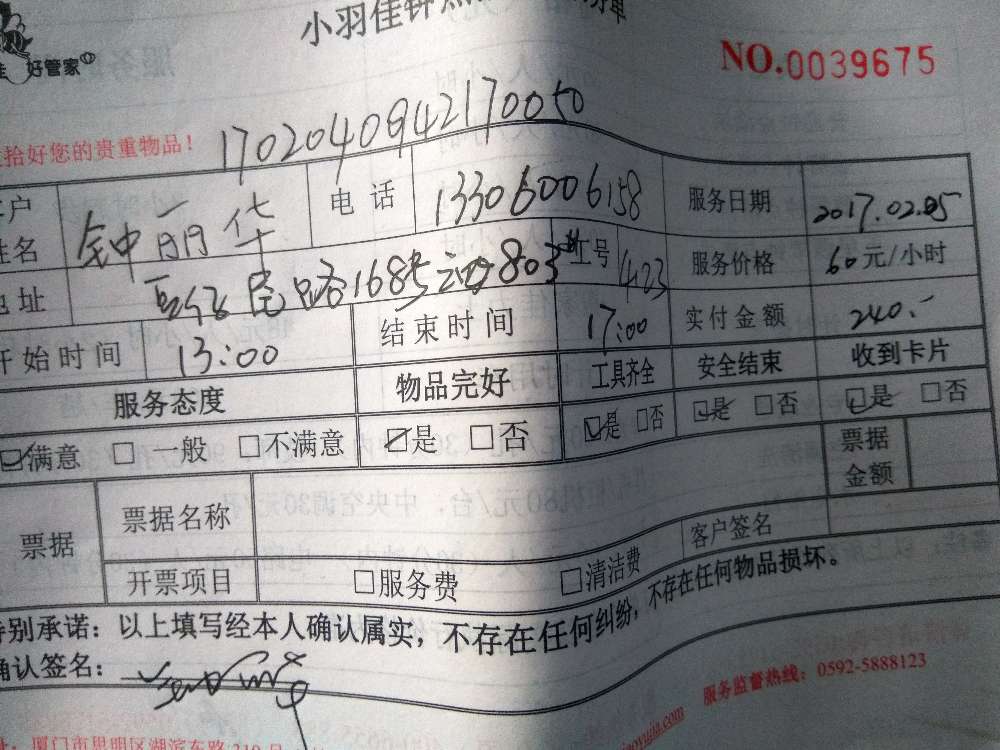 小羽佳钟点
好管家
NO.0039675
拾好您的贵重物品!
1702040942170050
客户姓名 钟丽华 电话 13306006158 服务日期 2017.02.05
地址 民路168号 803 工号 423 服务价格 60元/小时
开始时间 13:00 结束时间 17:00 实付金额 240.-
服务态度 物品完好 工具齐全 安全结束 收到卡片
☑满意 □一般 □不满意 ☑是 □否 ☑是 □否 ☑是 □否 ☑是 □否
票据 票据名称 票据金额
开票项目 □服务费 □清洁费 客户签名
特别承诺:以上填写经本人确认属实,不存在任何纠纷,不存在任何物品损坏。
确认签名:
服务监督热线:0592-5888123
厦门市思明区湖滨东路319号